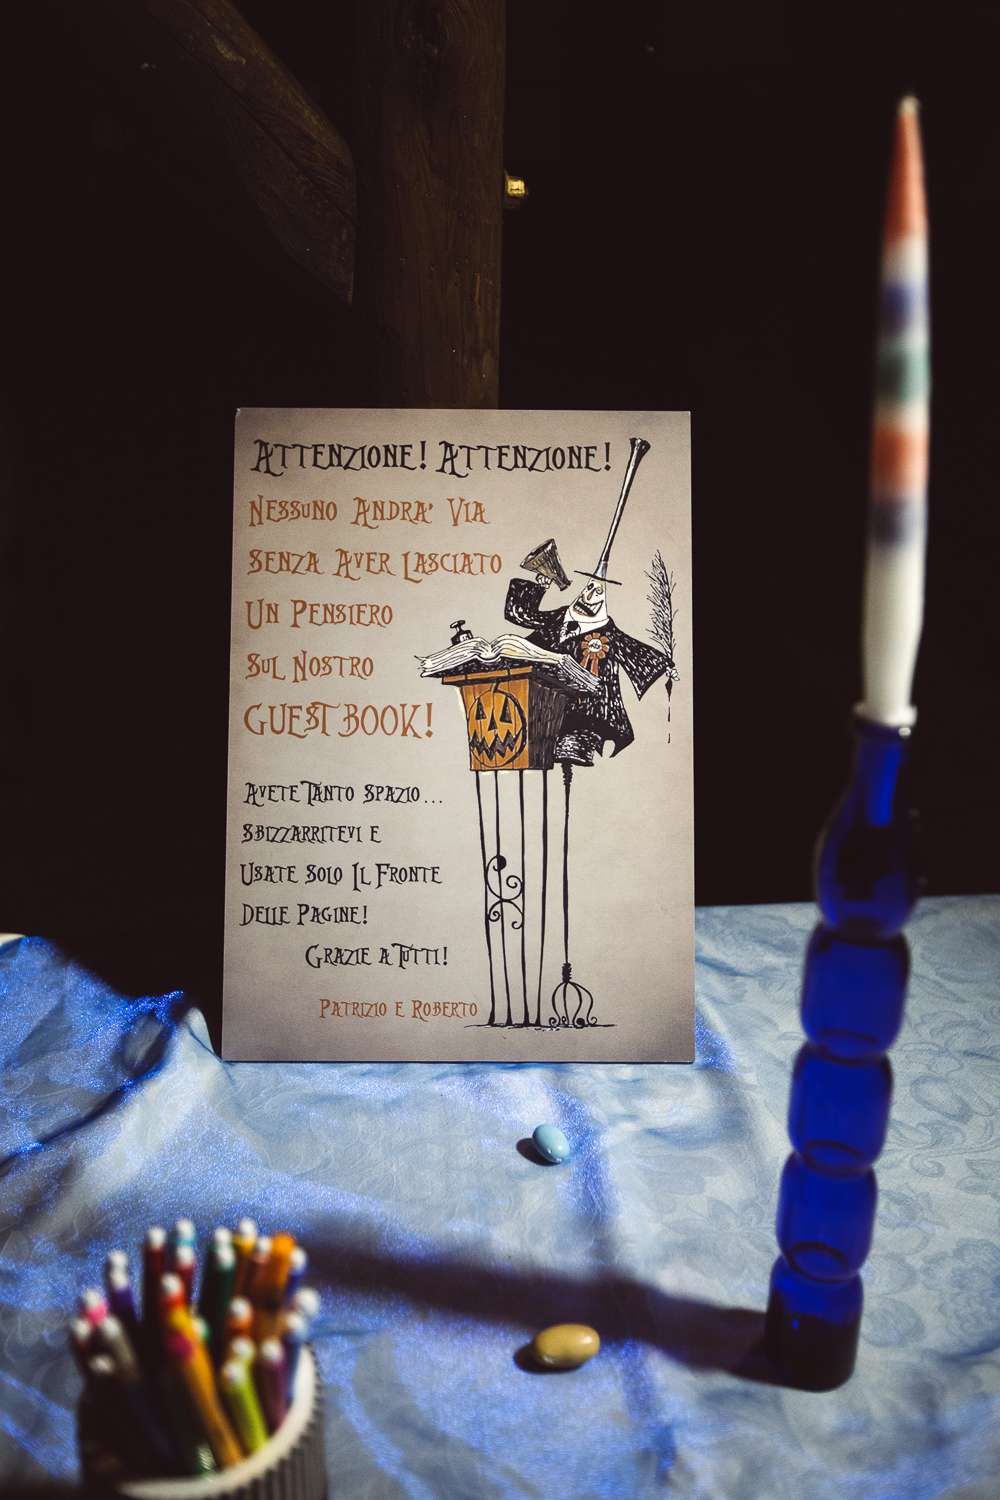 Attenzione! Attenzione!
Nessuno Andra' Via
Senza Aver Lasciato
Un Pensiero
Sul Nostro
GUEST BOOK!
Avete Tanto Spazio...
Sbizzarritevi e
Usate Solo Il Fronte
Delle Pagine!
Grazie a Tutti!
Patrizio e Roberto